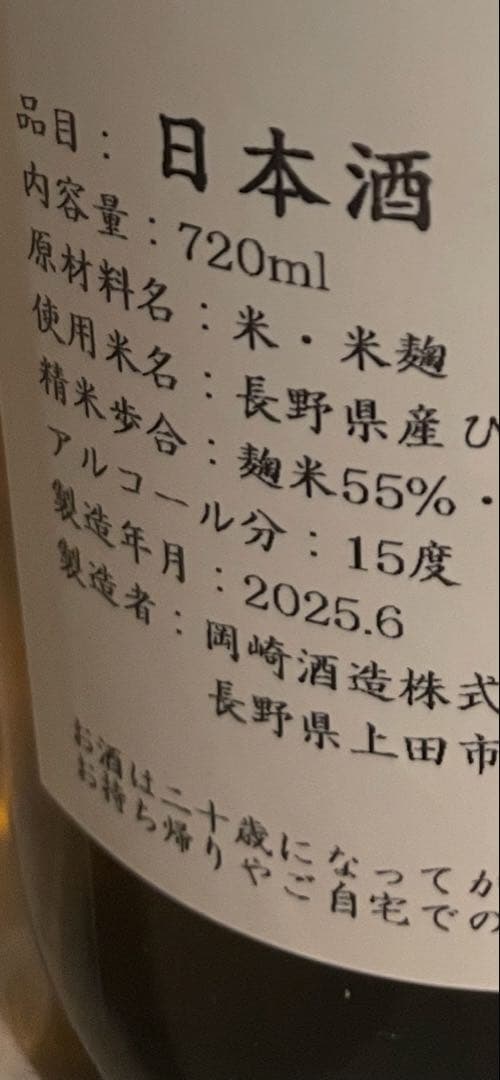 品目：日本酒
内容量：720ml
原材料名：米・米麹
使用米名：長野県産ひ
精米歩合：麹米55%・
アルコール分：15度
製造年月：2025.6
製造者：岡崎酒造株式
長野県上田市
お酒は二十歳になってか
お持ち帰りやご自宅での